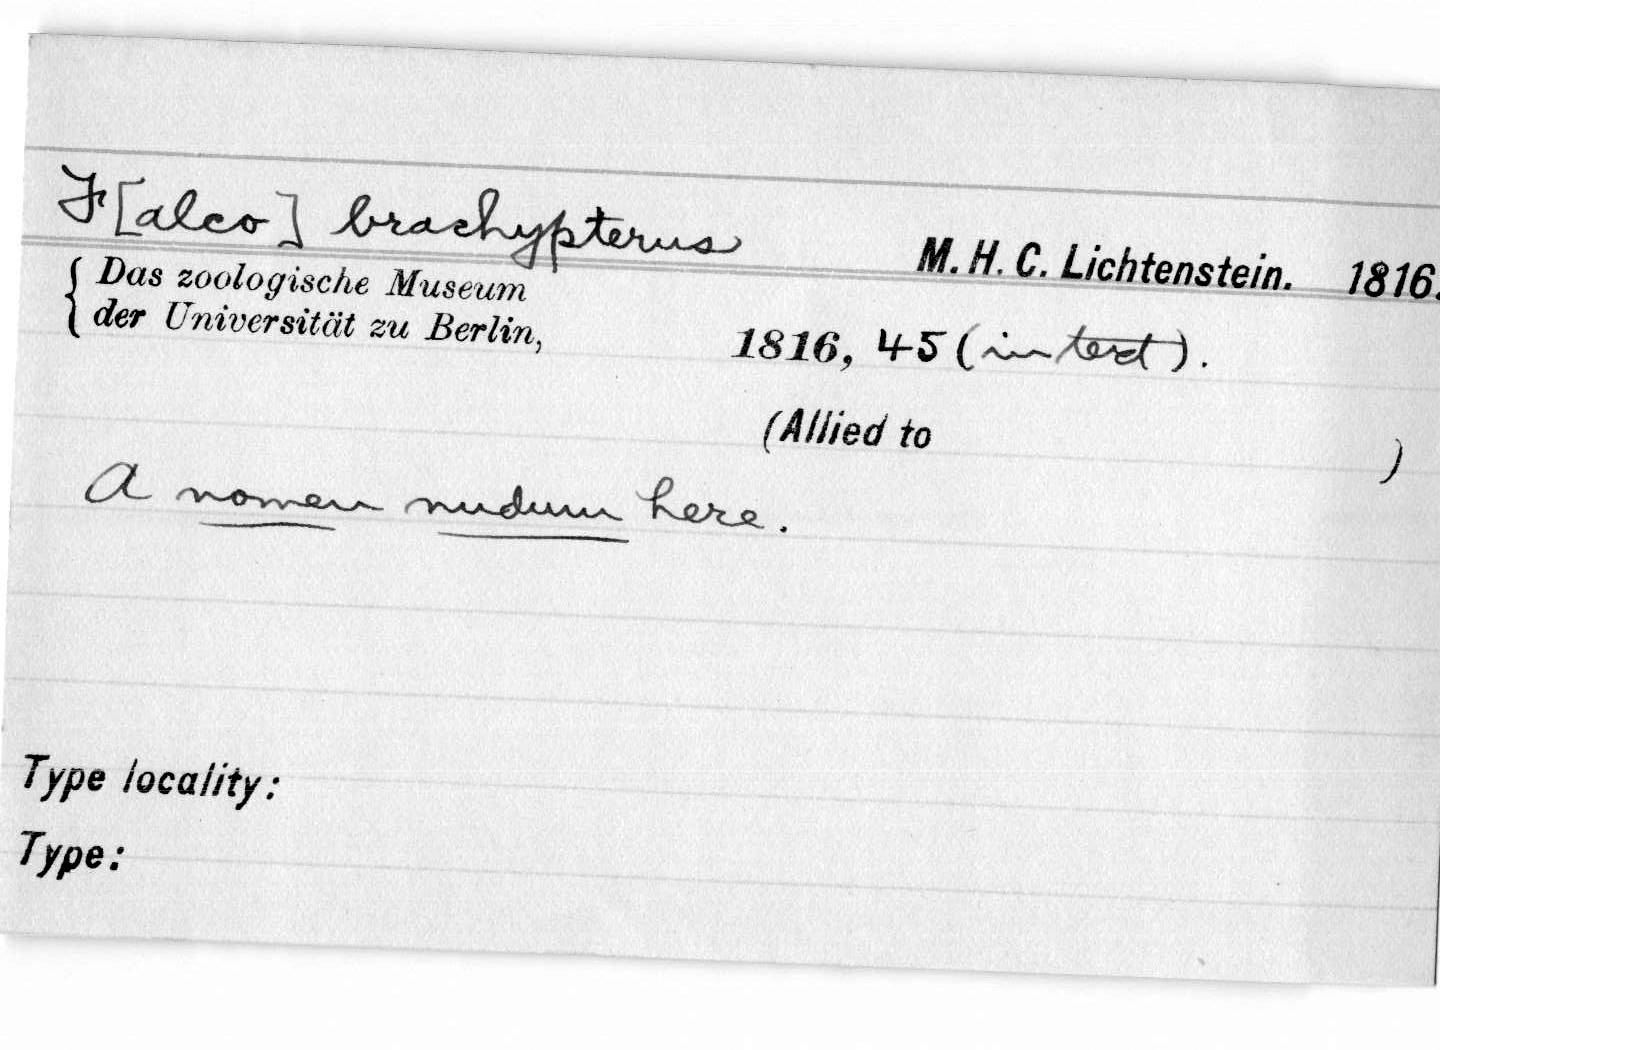 F[alco] brachypterus
M. H. C. Lichtenstein. 1816.
{ Das zoologische Museum
der Universität zu Berlin,
1816, 45 (in text).
(Allied to )
A nomen nudum here.
Type locality:
Type: